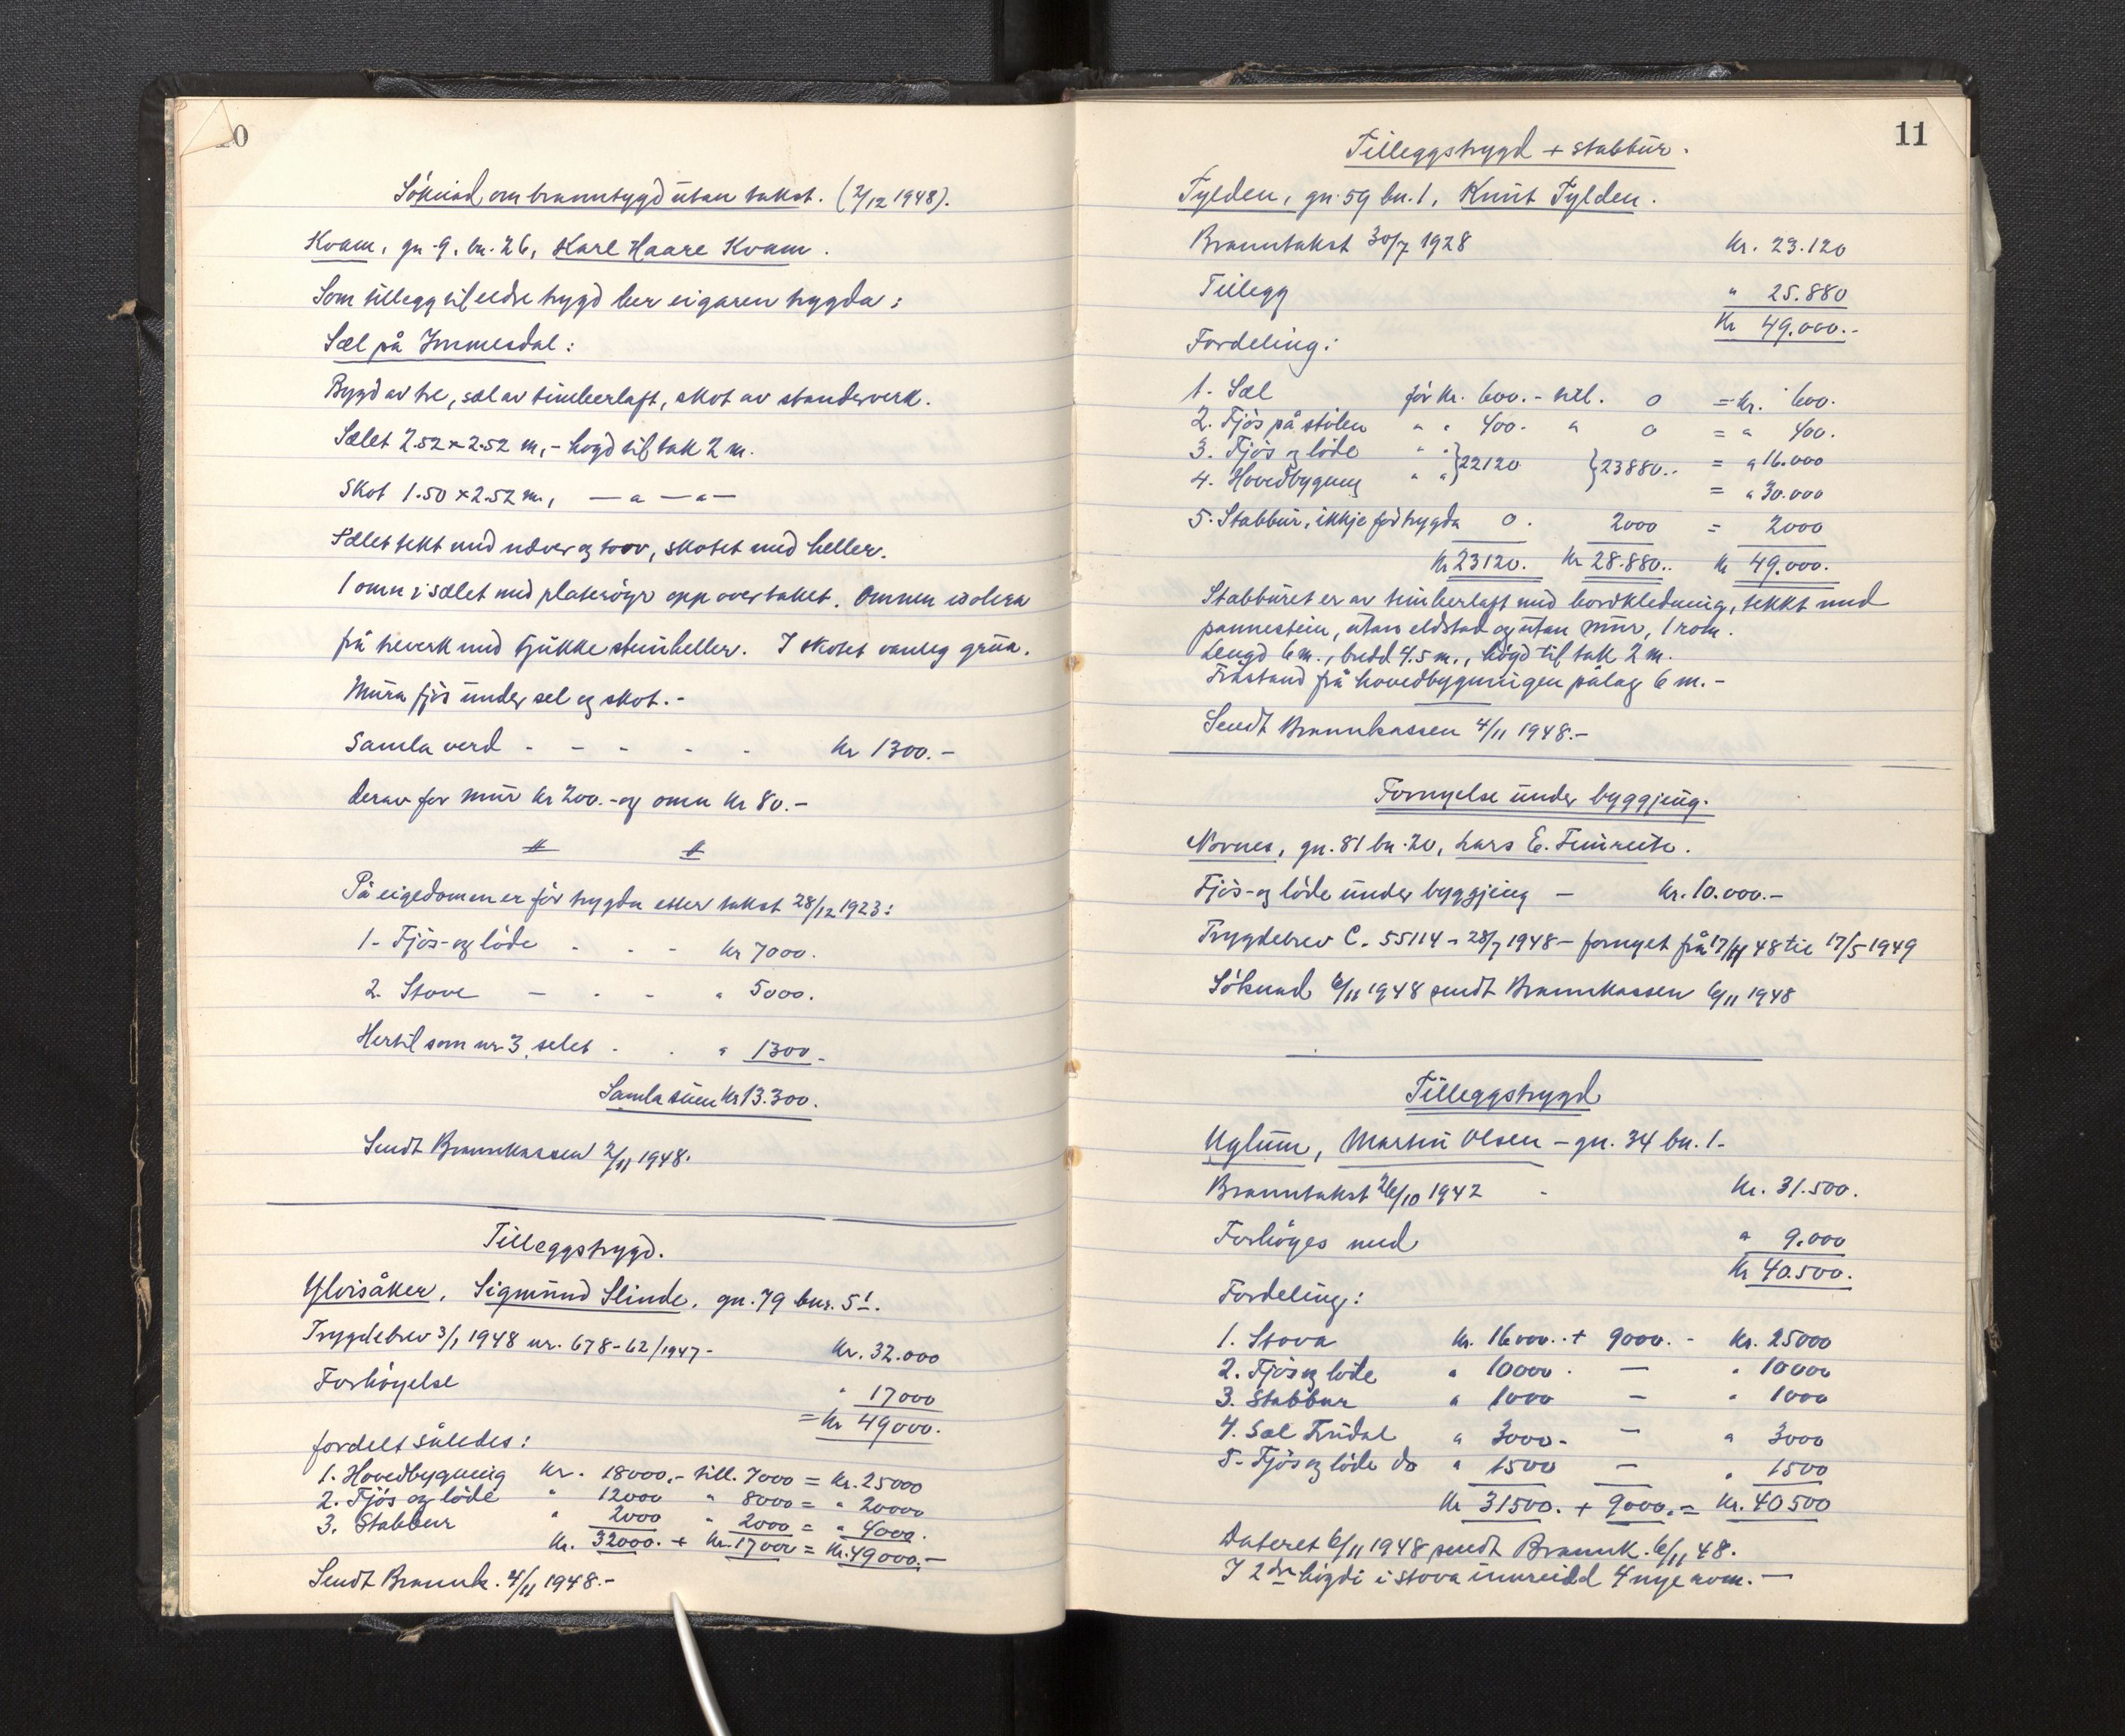 10
Söknad om branntrygd utan takst. (2/12 1948).
Kvam, gn. 9. bn. 26, Karl Haare Kvam.
Som tillegg til eldre trygd ber eigaren trygda:
Sæl på Immesdal:
Bygd av tre, sæl av timberlaft, skot av standerverk.
Sælet 2.52 x 2.52 m, - høgd til tak 2 m.
Skot 1.50 x 2.52 m, — " — " —
Sælet tekt med never og torv, skotet med heller.
1 omn i sælet med platerøyr opp over taket. Omnen isolera
frå treverk med tjukke steinheller. I skotet vanleg grua.
Mura fjös under sel og skot. -
Samla verd - - - - - Kr 1300.-
Derav for mur kr 200.- og omn kr 80.-
På eigedommen er för trygda etter takst 28/12 1923:
1- Fjös- og löde - - - Kr 7000.
2. Stove - - - " 5000.
Hertil som nr 3, selet - - " 1300.-
Samla sum Kr 13.300.
Sendt Brannkassen 2/11 1948.
Tilleggstrygd.
Ylvisåker, Sigmund Slinde, gn. 79 bnr. 5!.
Trygdebrev 3/1 1948 nr. 678-62/1947- Kr. 32.000
Forhöyelse " 17000
= Kr 49000.
fordelt således:
1. Hovedbygning Kr. 18000.- till. 7000 = Kr. 25000
2. Fjös og löde " 12000 " 8000 = " 20000
3. Stabbur " 2000 " 2000 = " 4000.
Kr. 32000. + Kr. 17000 = Kr. 49000.-
Sendt Brannk. 4/11 1948.-
11
Tilleggstrygd + stabbur.
Fylden, gn. 59 bn. 1, Knut Fylden.
Branntakst 30/7 1928 Kr. 23.120
Tillegg " 25.880
Kr 49.000.-
Fordeling:
1. Sæl för Kr. 600.- till. 0 = kr. 600.
2. Fjös på stölen " " 400. " 0 = " 400.
3. Fjös og löde " " }22120 }23880.. = " 16.000
4. Hovedbygning " " = " 30.000
5. Stabbur, ikkje før trygda 0. 2000 = 2000
Kr 23120. Kr 28.880.. Kr 49.000.
Stabburet er av timberlaft med bordkledning, tekkt med
pannestein, utan eldstad og utan mur, 1 rom.
Lengd 6 m., bredd 4.5 m., högd til tak 2 m.
Frástand frå hovedbygningen pålag 6 m. -
Sendt Brannkassen 4/11 1948.-
Fornyelse under byggjing.
Nornes, gn. 81 bn. 20, Lars E. Fimreite.
Fjös- og löde under byggjing - Kr. 10.000.-
Trygdebrev C. 55114 - 28/7 1948 - fornyet frå 17/11 48 til 17/5 1949
Söknad 6/11 1948 sendt Brannkassen 6/11 1948
Tilleggstrygd
Uglum, Martin Olsen - gn. 34 bn. 1-
Branntakst 26/10 1942 - Kr. 31.500.
Forhöyes med " 9.000
Kr 40.500.
Fordeling:
1. Stova Kr. 16000.. + 9000. - Kr. 25000
2. Fjös og löde " 10000. — " 10000
3. Stabbur " 1000 — " 1000
4. Sæl Frudal " 3000- — " 3000
5- Fjös og löde do " 1500 — " 1500
Kr 31500. + 9000.= Kr. 40500
Dateret 6/11 1948 sendt Brannk. 6/11 48.
I 2dre högdi i stova innreidd 4 nye rom. —